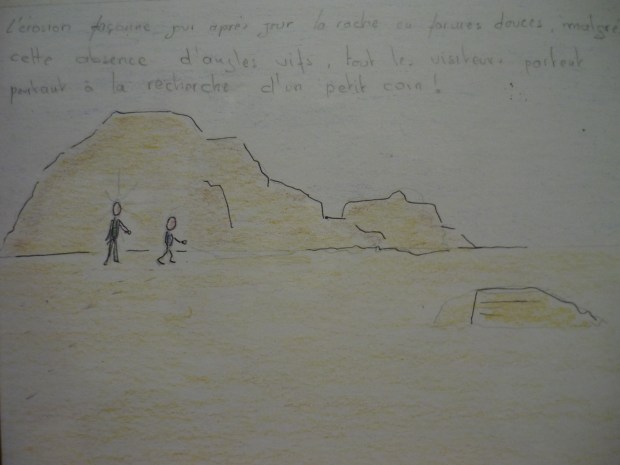 L'érosion façonne jour après jour la roche en formes douces, malgré
cette absence d'angles vifs, tout les visiteurs partent
pourtant à la recherche d'un petit coin !